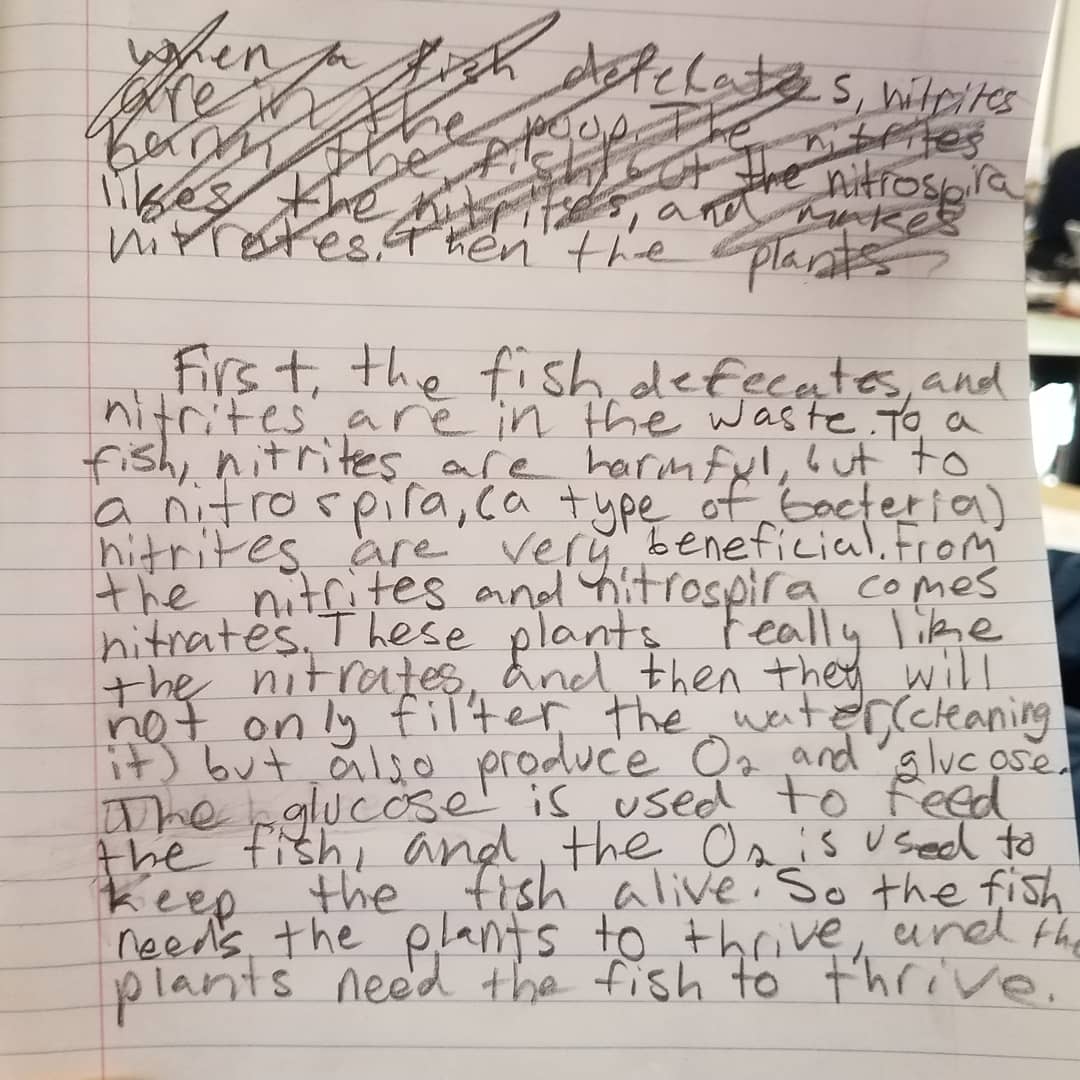 when a fish defecates, nitrites
are in the poop. The nitrites
harm the fish, but the nitrospira
likes the nitrites, and makes
nitrates. Then the plants
First, the fish defecates, and
nitrites are in the waste. To a
fish, nitrites are harmful, but to
a nitrospira, (a type of bacteria)
nitrites are very beneficial. From
the nitrites and nitrospira comes
nitrates. These plants really like
the nitrates, and then they will
not only filter the water, (cleaning
it) but also produce O2 and glucose.
The glucose is used to feed
the fish, and the O2 is used to
keep the fish alive. So the fish
needs the plants to thrive, and the
plants need the fish to thrive.